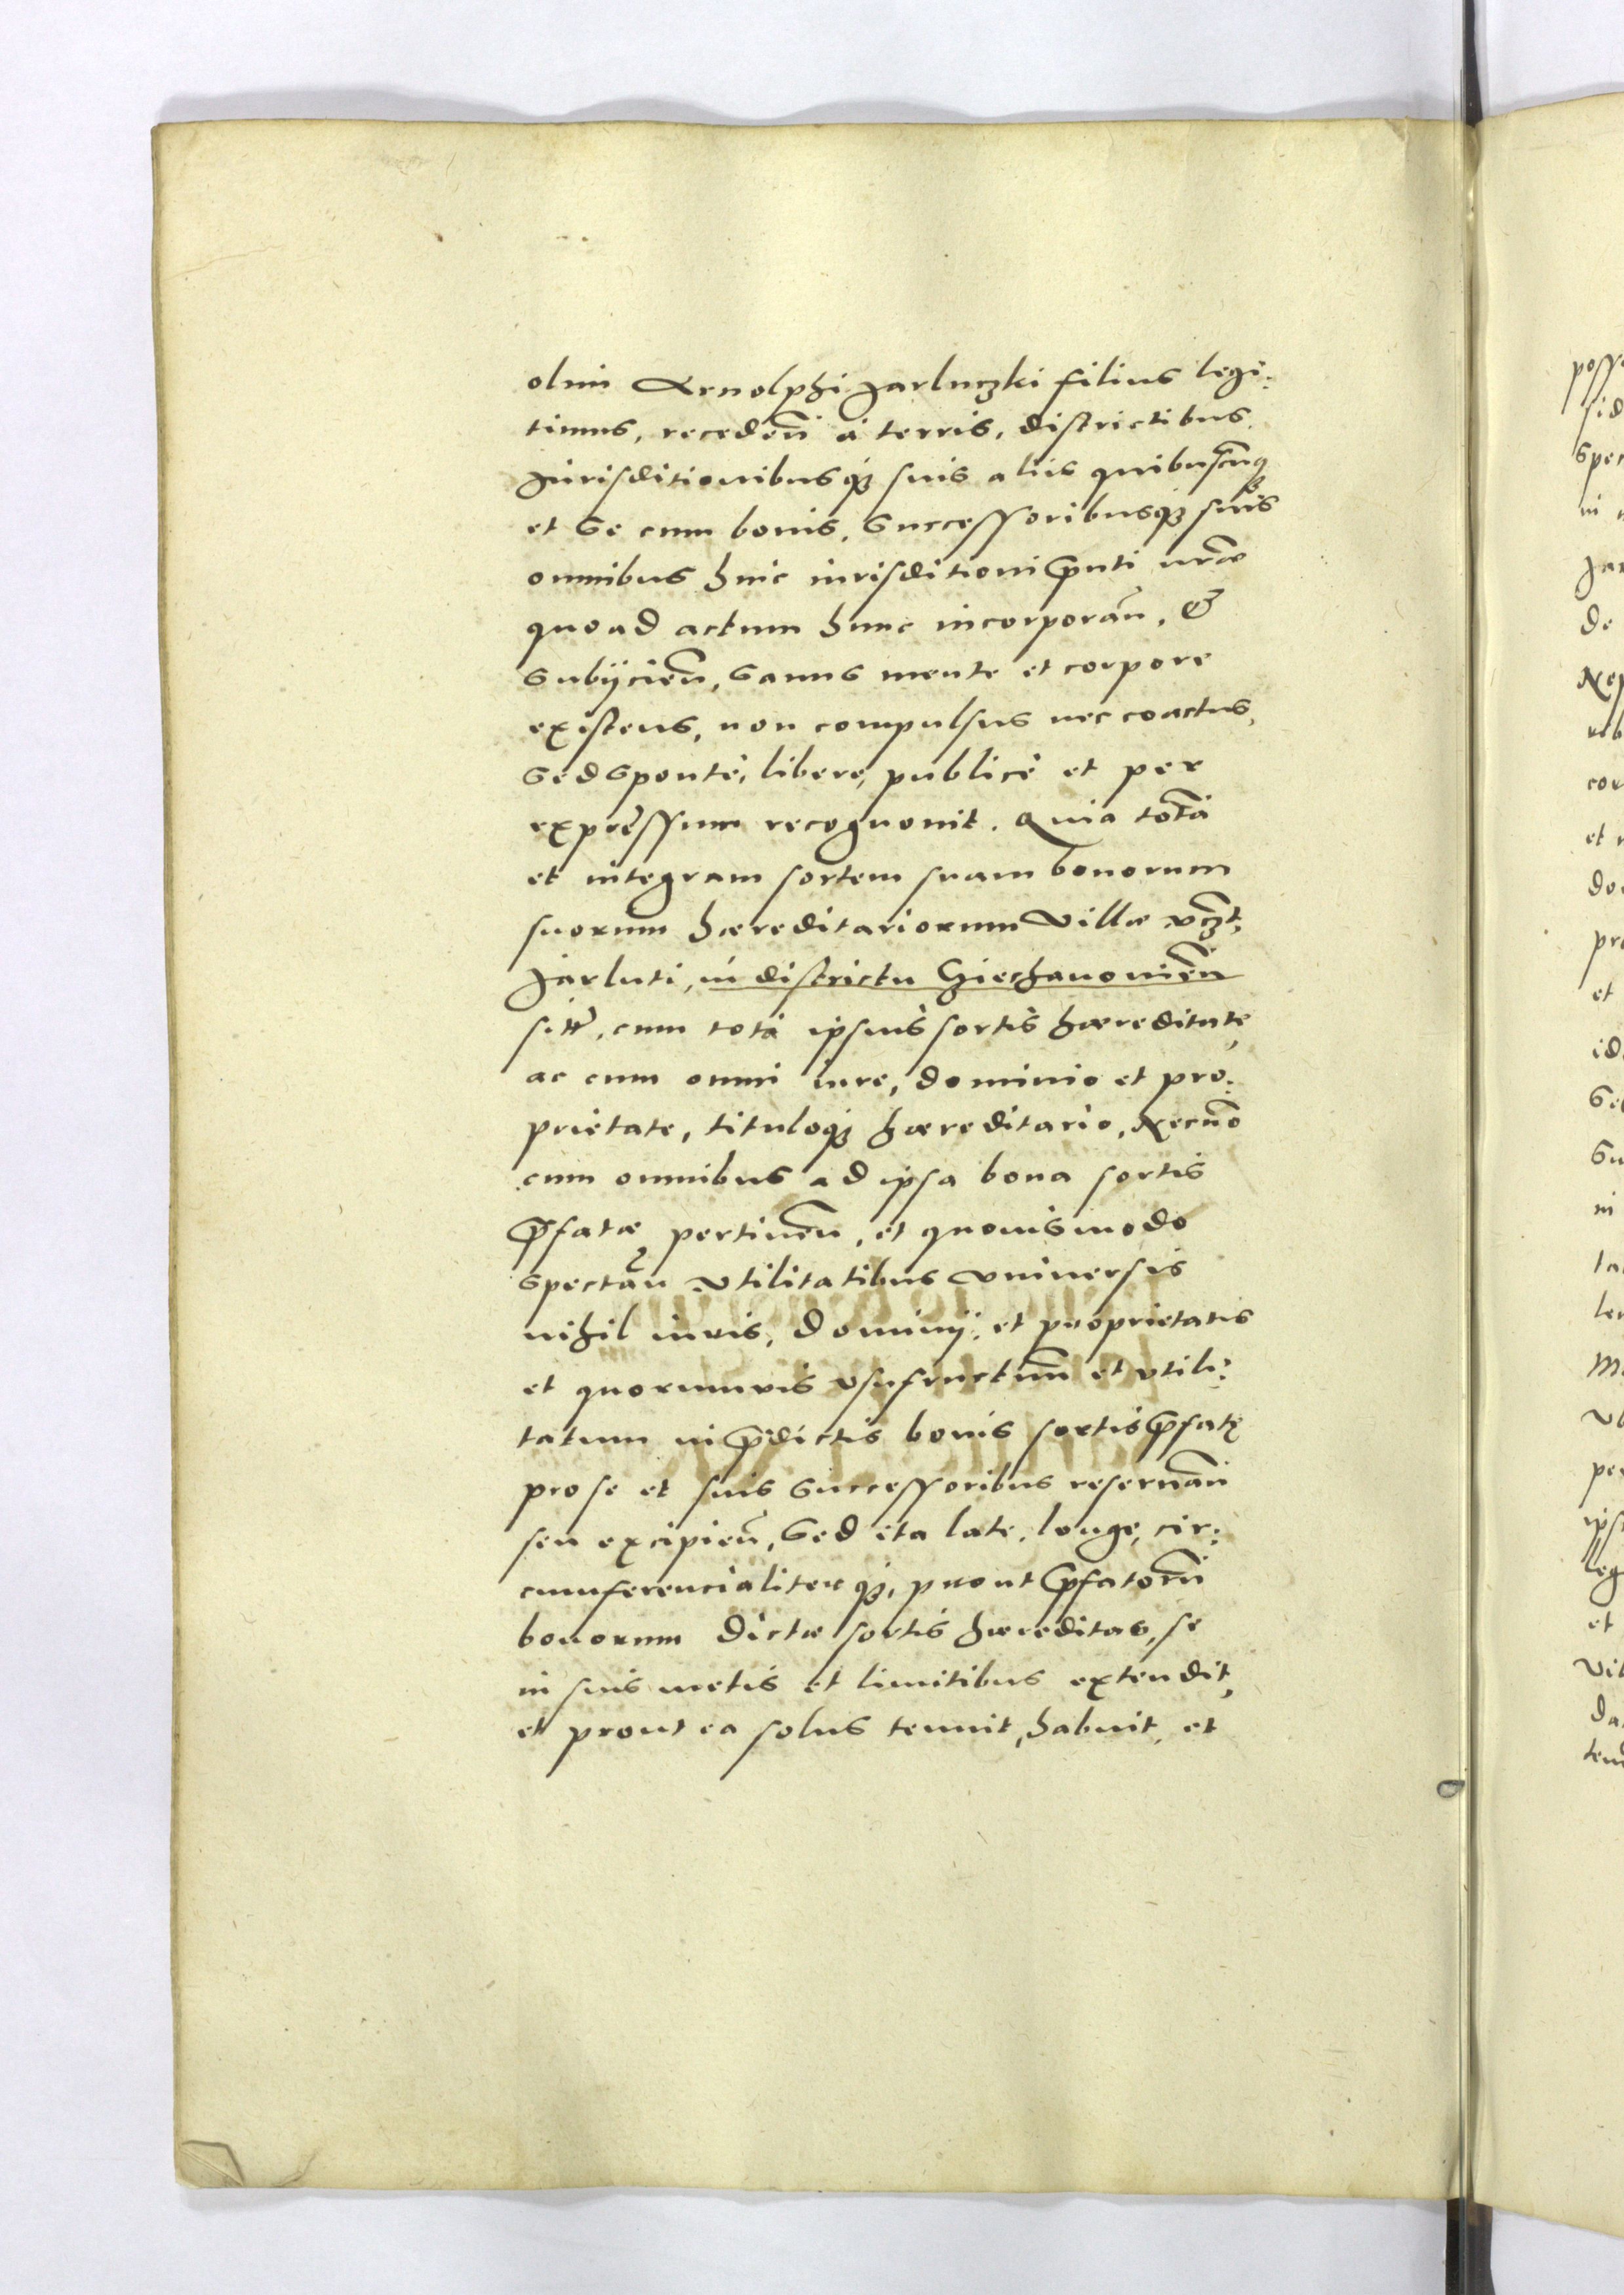 olim Arnolphi Jarluczki filius legi:
timus, recedeñ à terris, districtibus,
Jurisditionibusq; suis aliis quibuscūq;
et se cum bonis, successoribusq; suis
omnibus huic iurisditioni p̄nti nr̄æ
quoad actum hunc incorporań, &
subijcień, sanus mente et corpore
existens, non compulsus nec coactus,
sed spontè, liberè, publicè et per
expressum recognouit. Quia totā
et integram sortem suam bonorum
suorum hæreditariorum Villæ vczt.
Jarluti, in districtu Ciechanowień
sitť, cum totà ipsius sortis hæreditate,
ac cum omni iure, dominio et pro:
prietate, tituloq; hæreditario, Necnō
cum omnibus ad ipsa bona sortis
p̄fatæ pertineń, et quouismodo
spectań vtilitatibus vniuersis
nihil iuris, dominij, et proprietatis
et quorumuis vsufructuum et vtili:
tatum in p̄dictis bonis sortis p̄fatę
pro se et suis successoribus reseruań
seu excipień, sed ita late, longe, cir:
cumferencialiterq;, prout p̄fatorū
bonorum dictæ sortis hæreditas, se
in suis metis et limitibus extendit,
et prout ea solus tenuit, habuit, et